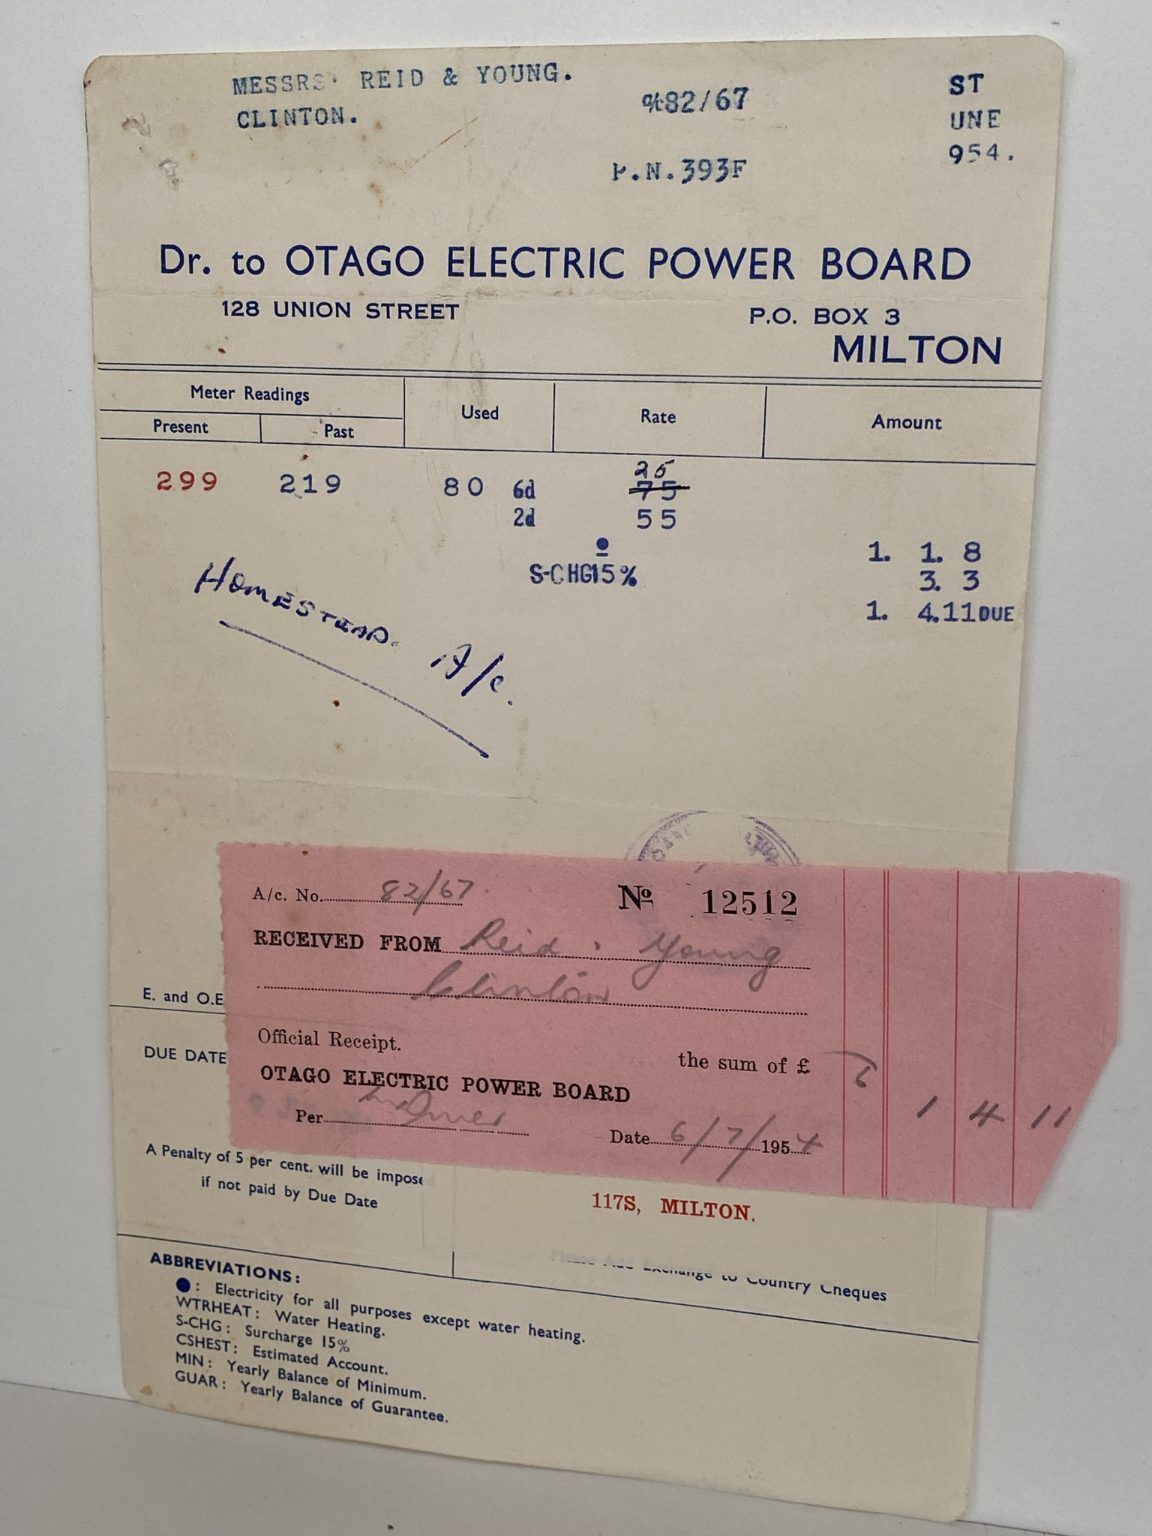 MESSRS. REID & YOUNG.
CLINTON.
82/67
P.N.393F
ST
UNE
954.
Dr. to OTAGO ELECTRIC POWER BOARD
128 UNION STREET
P.O. BOX 3
MILTON
Meter Readings
Present
Past
Used
Rate
Amount
25
299 219 80 6d 75
2d 55
1. 1. 8
S-CHG15% 3. 3
1. 4.11DUE
HOMESTEAD. A/c.
A/c. No. 82/67 Nº 12512
RECEIVED FROM Reid & Young
Clinton
Official Receipt.
the sum of £ 1 4 11
OTAGO ELECTRIC POWER BOARD
Per
Date 6/7/1954
E. and O.E
DUE DATE
A Penalty of 5 per cent. will be impose
if not paid by Due Date
117S, MILTON.
Exchange to Country Cheques
ABBREVIATIONS:
●: Electricity for all purposes except water heating.
WTRHEAT: Water Heating.
S-CHG: Surcharge 15%
CSHEST: Estimated Account.
MIN: Yearly Balance of Minimum.
GUAR: Yearly Balance of Guarantee.